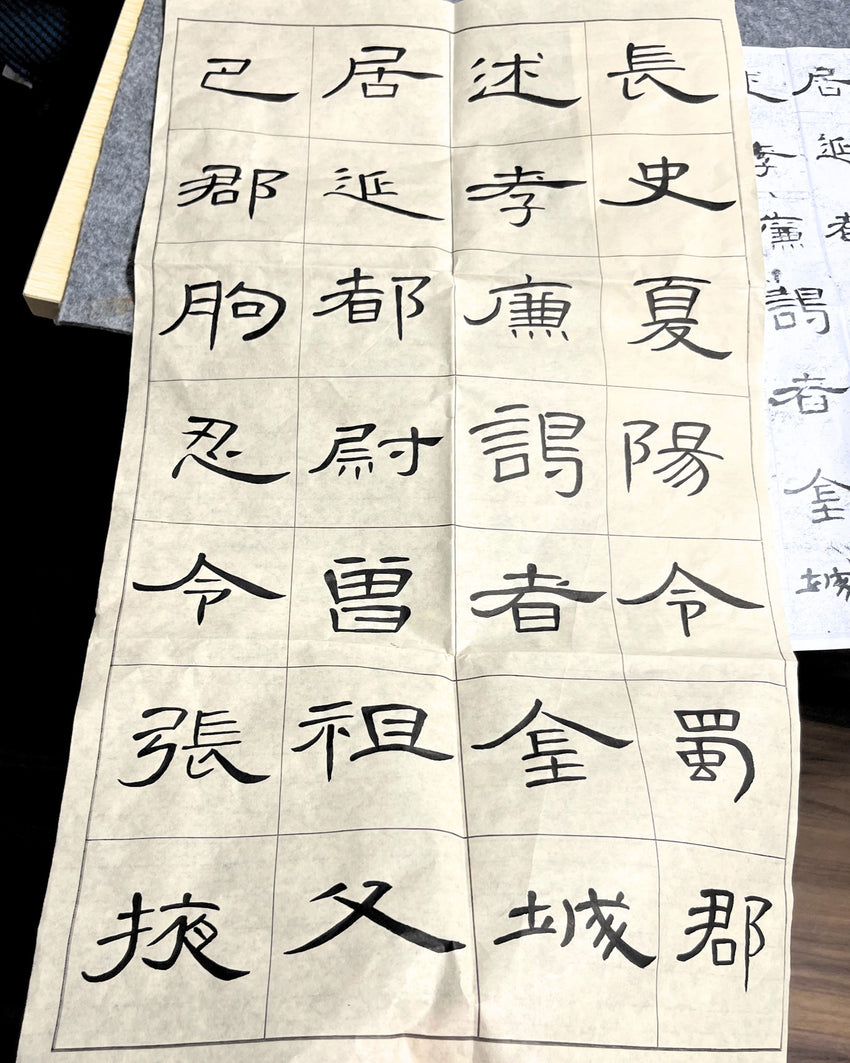 巴郡朐忍令張掖
居延都尉曾祖父
述孝廉謁者金城
長史夏陽令蜀郡
居延都
述孝廉謁者金城